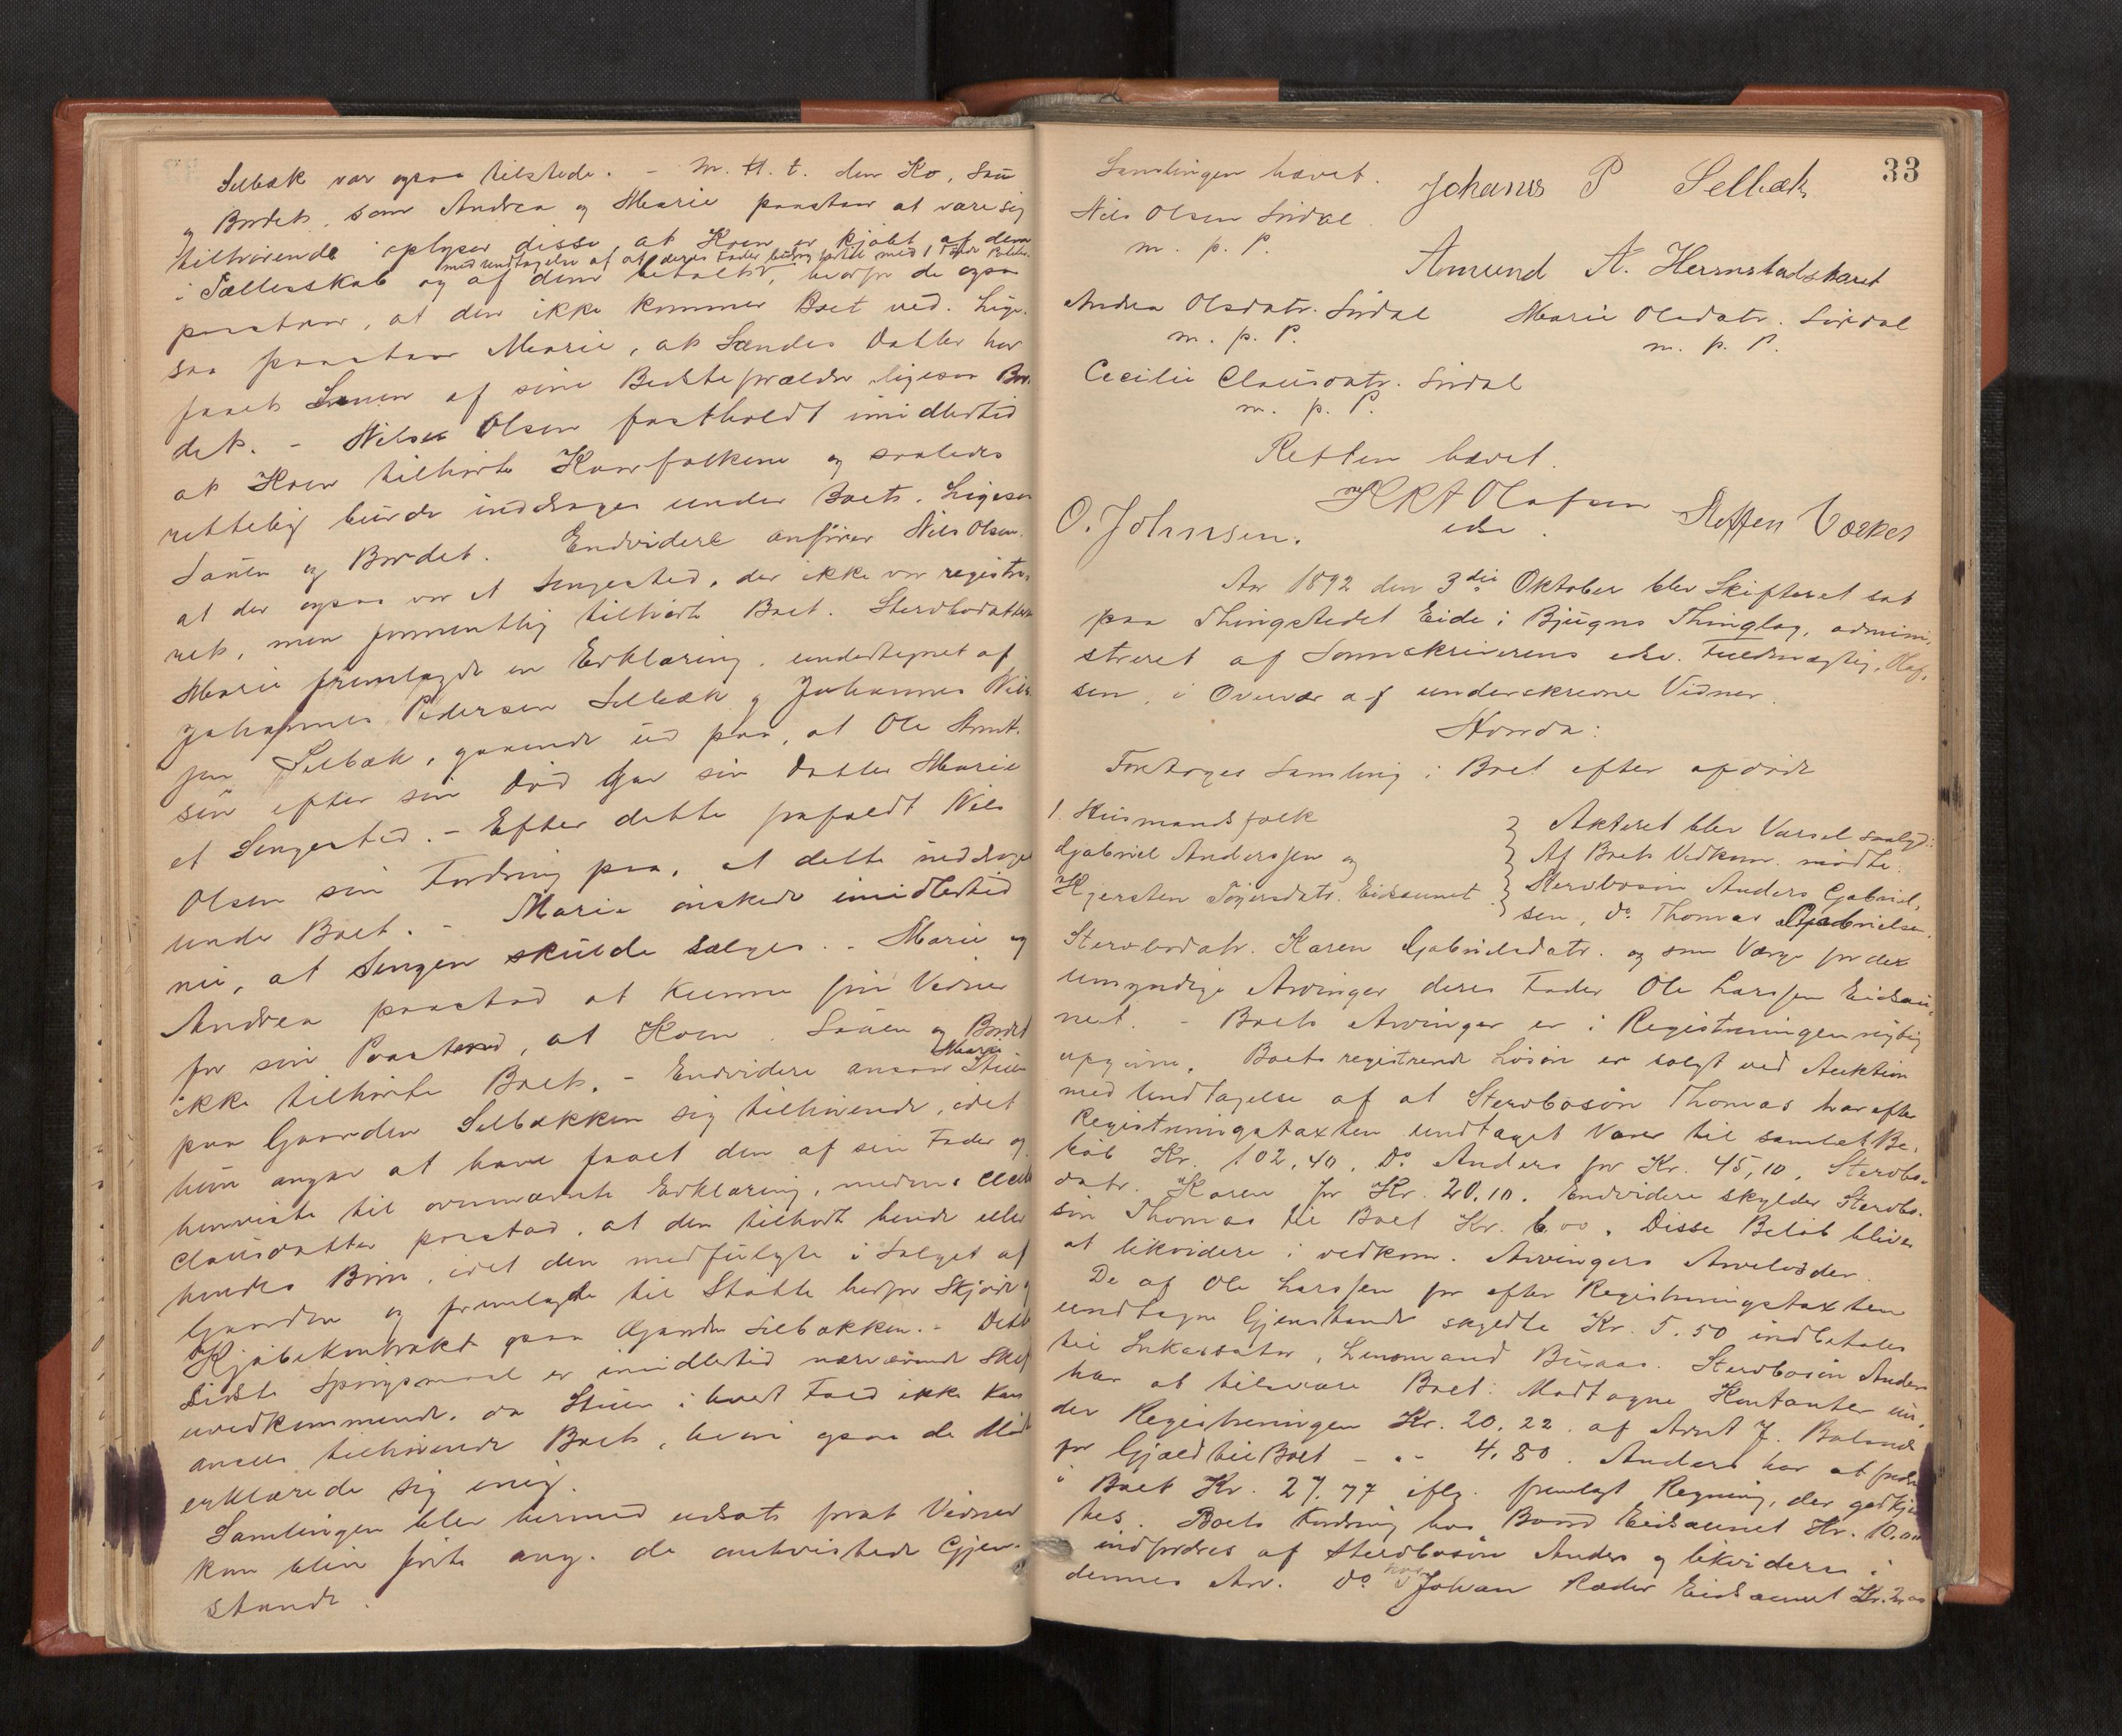 Selbæk var ogsaa tilstede. - M. H. t. den Ko, Sau
og Bordet, som Andrea og Marie paastaar at være sig
tilhørende oplyser disse, at Koen er kjøbt af dem
med Undtagelse af at deres Fader bidrog hertil med 1
i Fællesskab og af dem betalt, hvorfor de ogsaa
paastaar, at den ikke kommer Boet ved. Lige-
saa paastaar Marie, at Datter har
faaet Sauen af sine Bedsteforældre ligesaa Bor-
det. - Nils Olsen fastholdt imidlertid
at Koen tilhørte Kaarfolkene og saaledes
rettelig burde inddrages under Boet. Ligesaa
Sauen og Bordet. Endvidere anfører Nils Olsen
at der ogsaa var et Sengested, der ikke var registre-
ret, men formentlig tilhørte Boet. Stervbodatteren
Marie fremlagde en Erklæring, undertegnet af
Johannes Pedersen Selbæk og Johannes Nils-
sen Selbæk, gaaende ud paa, at Ole Arnt-
sen efter sin Død gav sin Datter Marie
et Sengested. - Efter dette frafaldt Nils
Olsen sin Fordring paa, at dette inddrages
under Boet. - Marie ønskede imidlertid
nu, at Sengen skulde sælges. - Marie og
Andrea paastod at kunne føre Vidner
for sin Paastand, at Koen, Sauen og Bordet
ikke tilhørte Boet. - Endvidere ansaar Marie Stuen
paa Gaarden Selbækken sig tilhørende, idet
hun angav at have faaet den af sin Fader og
henviste til ovennævnte Erklæring, medens Cecilie
Clausdatter paastod, at den tilhørte hende eller
hendes Børn, idet den medfulgte i Salget af
Gaarden og fremlagde til Støtte herfor Skjøde og
Kjøbekontrakt paa Gaarden Selbækken. - Dette
sidste Spørgsmaal er imidlertid nærværende Skifte
uvedkommende, da Stuen i hvert Fald ikke kan
ansees tilhørende Boet, hvori ogsaa de Mødte
erklærede sig enig.
Samlingen blev hermed udsat forat Vidner
kan blive ført ang. de omtvistede Gjen-
stande.
33
Samlingen hævet. Johanes P Selbæk
Nils Olsen Sørdal
m. p. P.
Amund A. Hernstadskaret
Andrea Olsdatr. Sørdal Marie Olsdatr. Sørdal
m. p. P. m. p. P.
Cecilie Clausdatr. Sørdal
m. p. P.
Retten hævet.
O. Johnsen. Olafsen Steffen Vækes
edv.
Aar 1892 den 3die Oktober blev Skifteret sat
paa Thingstedet Eide i Bjugns Thinglag, admini-
streret af Sorenskriverens edsv. Fuldmægtig, Olaf-
sen, i Overvær af underskrevne Vidner.
Hvorda:
Foretoges Samling i Boet efter afdøde
1. Husmandsfolk
Gabriel Anderssen og
Kjersten Eidsaunet.
Akteret blev Varsel saalyd:
Af Boets Vedkom. mødte:
Stervbosøn Anders Gabriel-
sen, do Thomas Gabrielsen,
Stervbodatr. Karen Gabrielsdatr. og som Værge for dex
umyndige Arvinger deres Fader Ole Larssen Eidsau-
net. - Boets Arvinger er i Registreringen rigtig
opgivne. Boets registrerede Løsøre er solgt ved Auktion
med Undtagelse af at Stervbosøn Thomas har efter
Registreringstaxten undtaget Varer til samlet Be-
løb Kr. 102,40, Do Anders for Kr. 45,10, Stervbo-
datr. Karen for Kr. 20.10. Endvidere skylder Stervbo-
søn Thomas til Boet Kr. 6.00. Disse Beløb bliver
at likvidere i vedkom. Arvingers Arvelodder.
De af Ole Larssen for efter Registreringstaxten
undtagne Gjenstande skyldte Kr. 5.50 indbetales
til Inkassator, Lensmand Buaas. Stervbosøn Anders
har at tilsvare Boet: Modtagne Kontanter un-
der Registreringen Kr. 20.22, af Arnt J. Boland
for Gjæld til Boet - „ - 4.80. Anders har at fordre
i Boet Kr. 27.77 iflg. fremlagt Regning, der godkjen-
tes. Boets Fordring hos Eidsaunet Kr. 10.00
indfordres af Stervbosøn Anders og likvideres i
dennes Arv. do hos Johan Eidsaunet Kr. 2.00